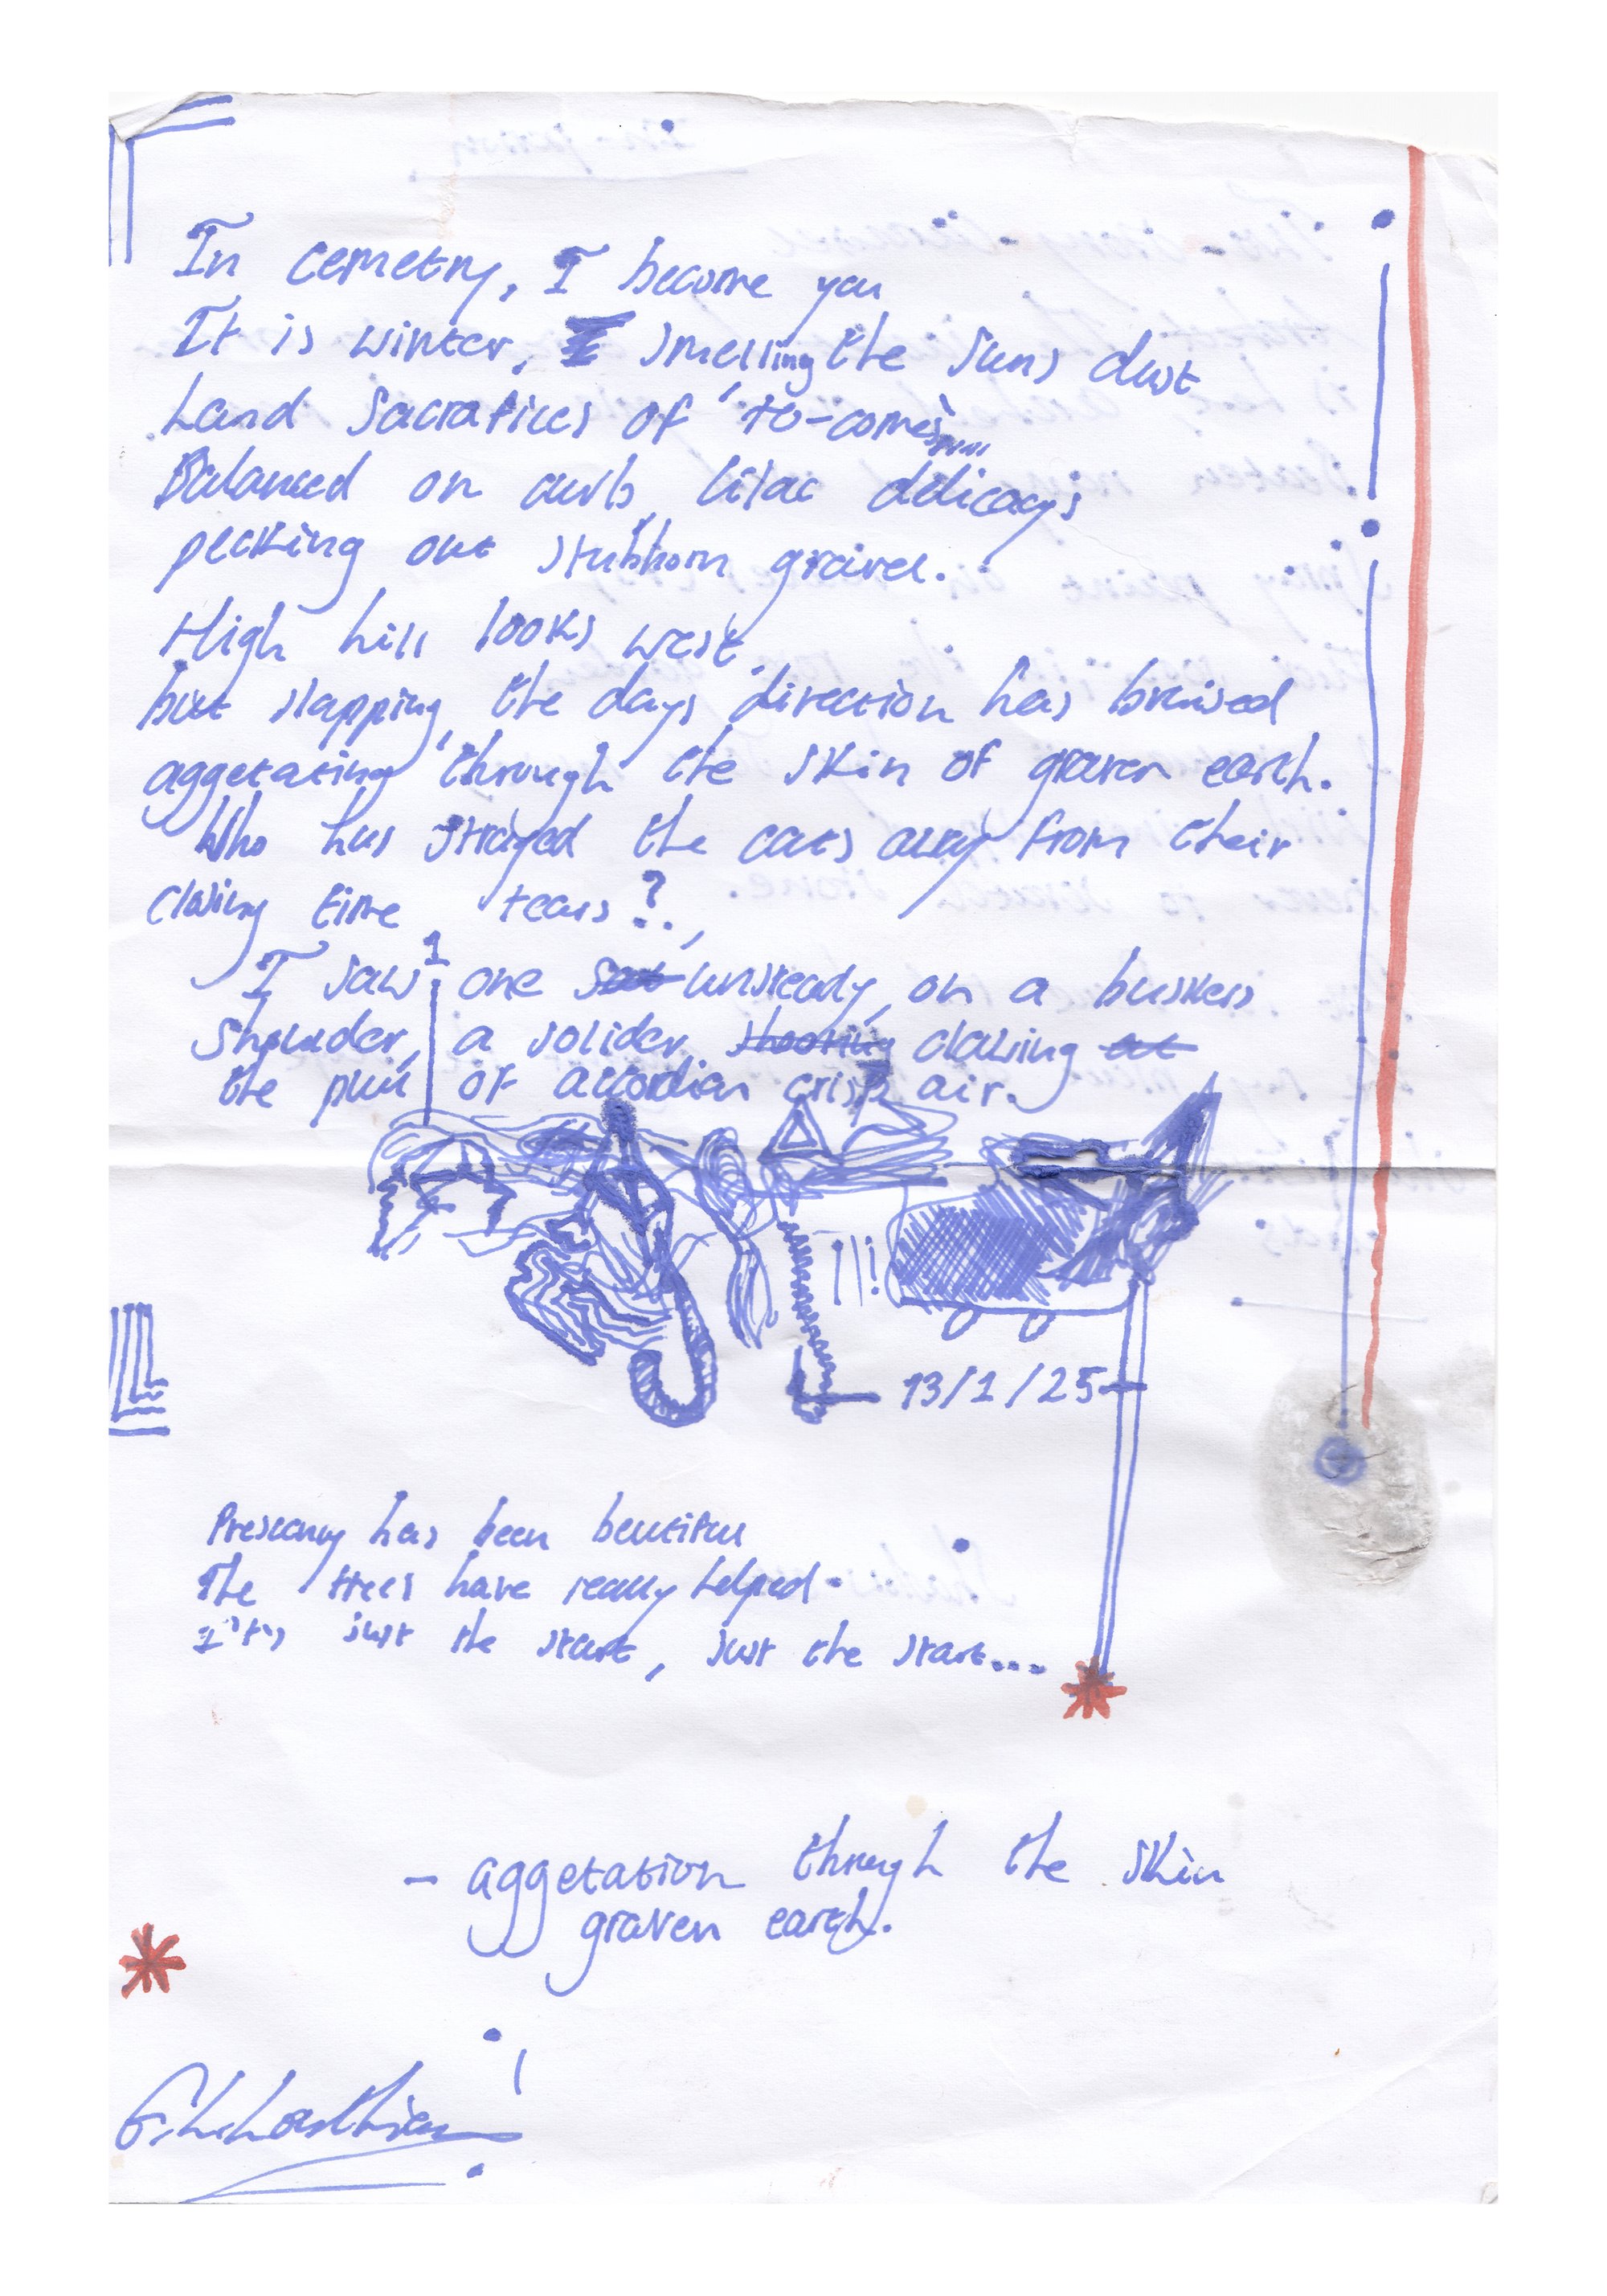 In cemetry, I become you
It is winter, smelling the suns dust
Land Sacrafices of 'to-comes
Balanced on curb, lilac delicacys
pecking out stubborn gravel.
High hill looks west,
but slapping, the days direction has bruised
aggetating through the skin of graven earth.
Who has strayed the cats away from their
clawing time tears?,
I saw 1 one unsteady, on a buskers
Shoulder, a solider, shooting clawing at
the pull of accordian crisp air.
13/1/25
has been beutiful
The trees have really helped.
It's just the start, just the start...
- aggetation through the skin
graven earth.